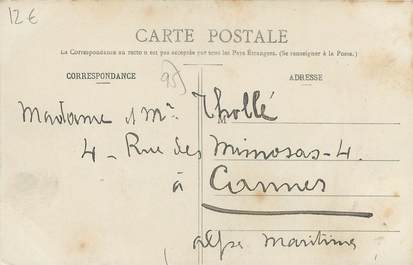 12€
CARTE POSTALE
La Correspondance au recto n'est pas acceptée par tous les Pays Étrangers. (Se renseigner à la Poste.)
CORRESPONDANCE
95
ADRESSE
Madame et Mr. Thollé
4 - Rue des Mimosas - 4.
à Cannes
Alpes Maritimes